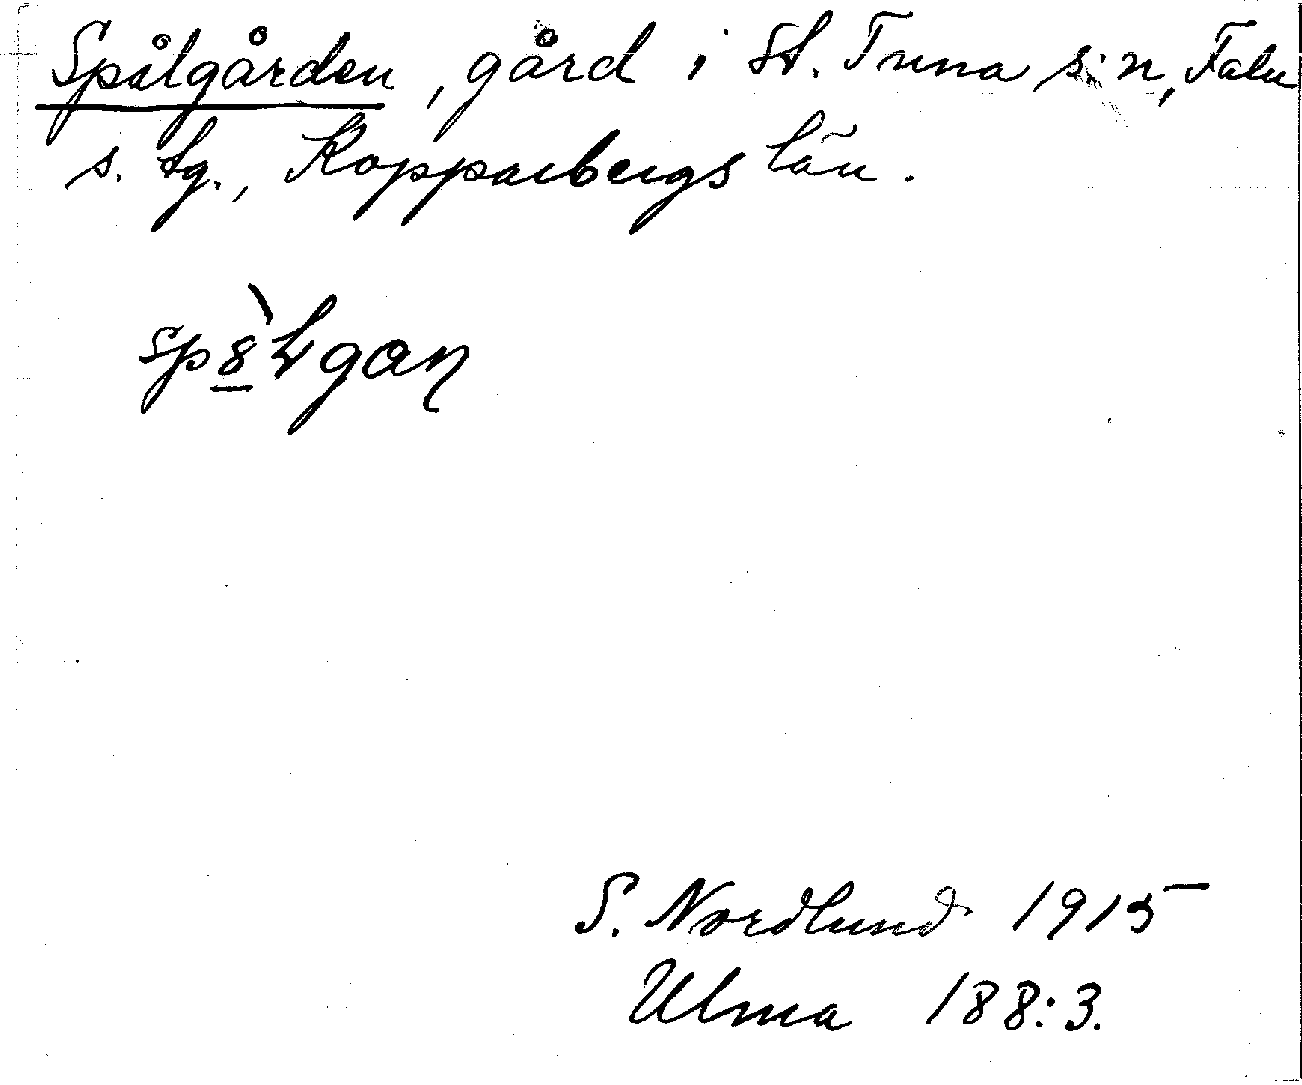 Spålgården, gård i St. Tuna s:n, Falu
s. tg., Kopparbergs län.
S. Nordlund 1915
Ulma 188:3.